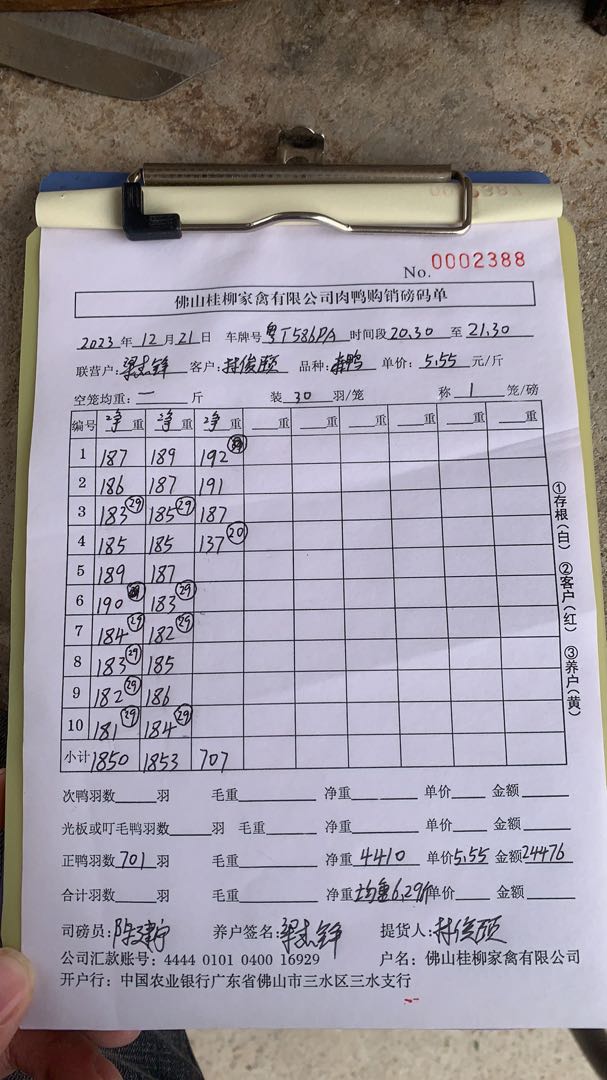 No. 0002388
佛山桂柳家禽有限公司肉鸭购销磅码单
2023年12月21日 车牌号粤T586PA 时间段20.30至21.30
联营户:梁志锋 客户:林俊颐 品种: 单价:5.55元/斤
空笼均重:一斤 装30羽/笼 称1笼/磅
编号 净重 净重 净重 重 重 重 重 重 重
1 187 189 192
2 186 187 191
3 183㉙ 185㉙ 187
4 185 185 137⑳
5 189 187
6 190 183㉙
7 184㉙ 182㉙
8 183㉙ 185
9 182㉙ 186
10 181㉙ 184㉙
小计 1850 1853 707
①存根(白) ②客户(红) ③养户(黄)
次鸭羽数 羽 毛重 净重 单价 金额
光板或叮毛鸭羽数 羽 毛重 净重 单价 金额
正鸭羽数701羽 毛重 净重4410 单价5.55 金额24476
合计羽数 羽 毛重 净重均重6.29斤单价 金额
司磅员: 养户签名:梁志锋 提货人:林俊颐
公司汇款账号: 4444 0101 0400 16929 户名: 佛山桂柳家禽有限公司
开户行: 中国农业银行广东省佛山市三水区三水支行